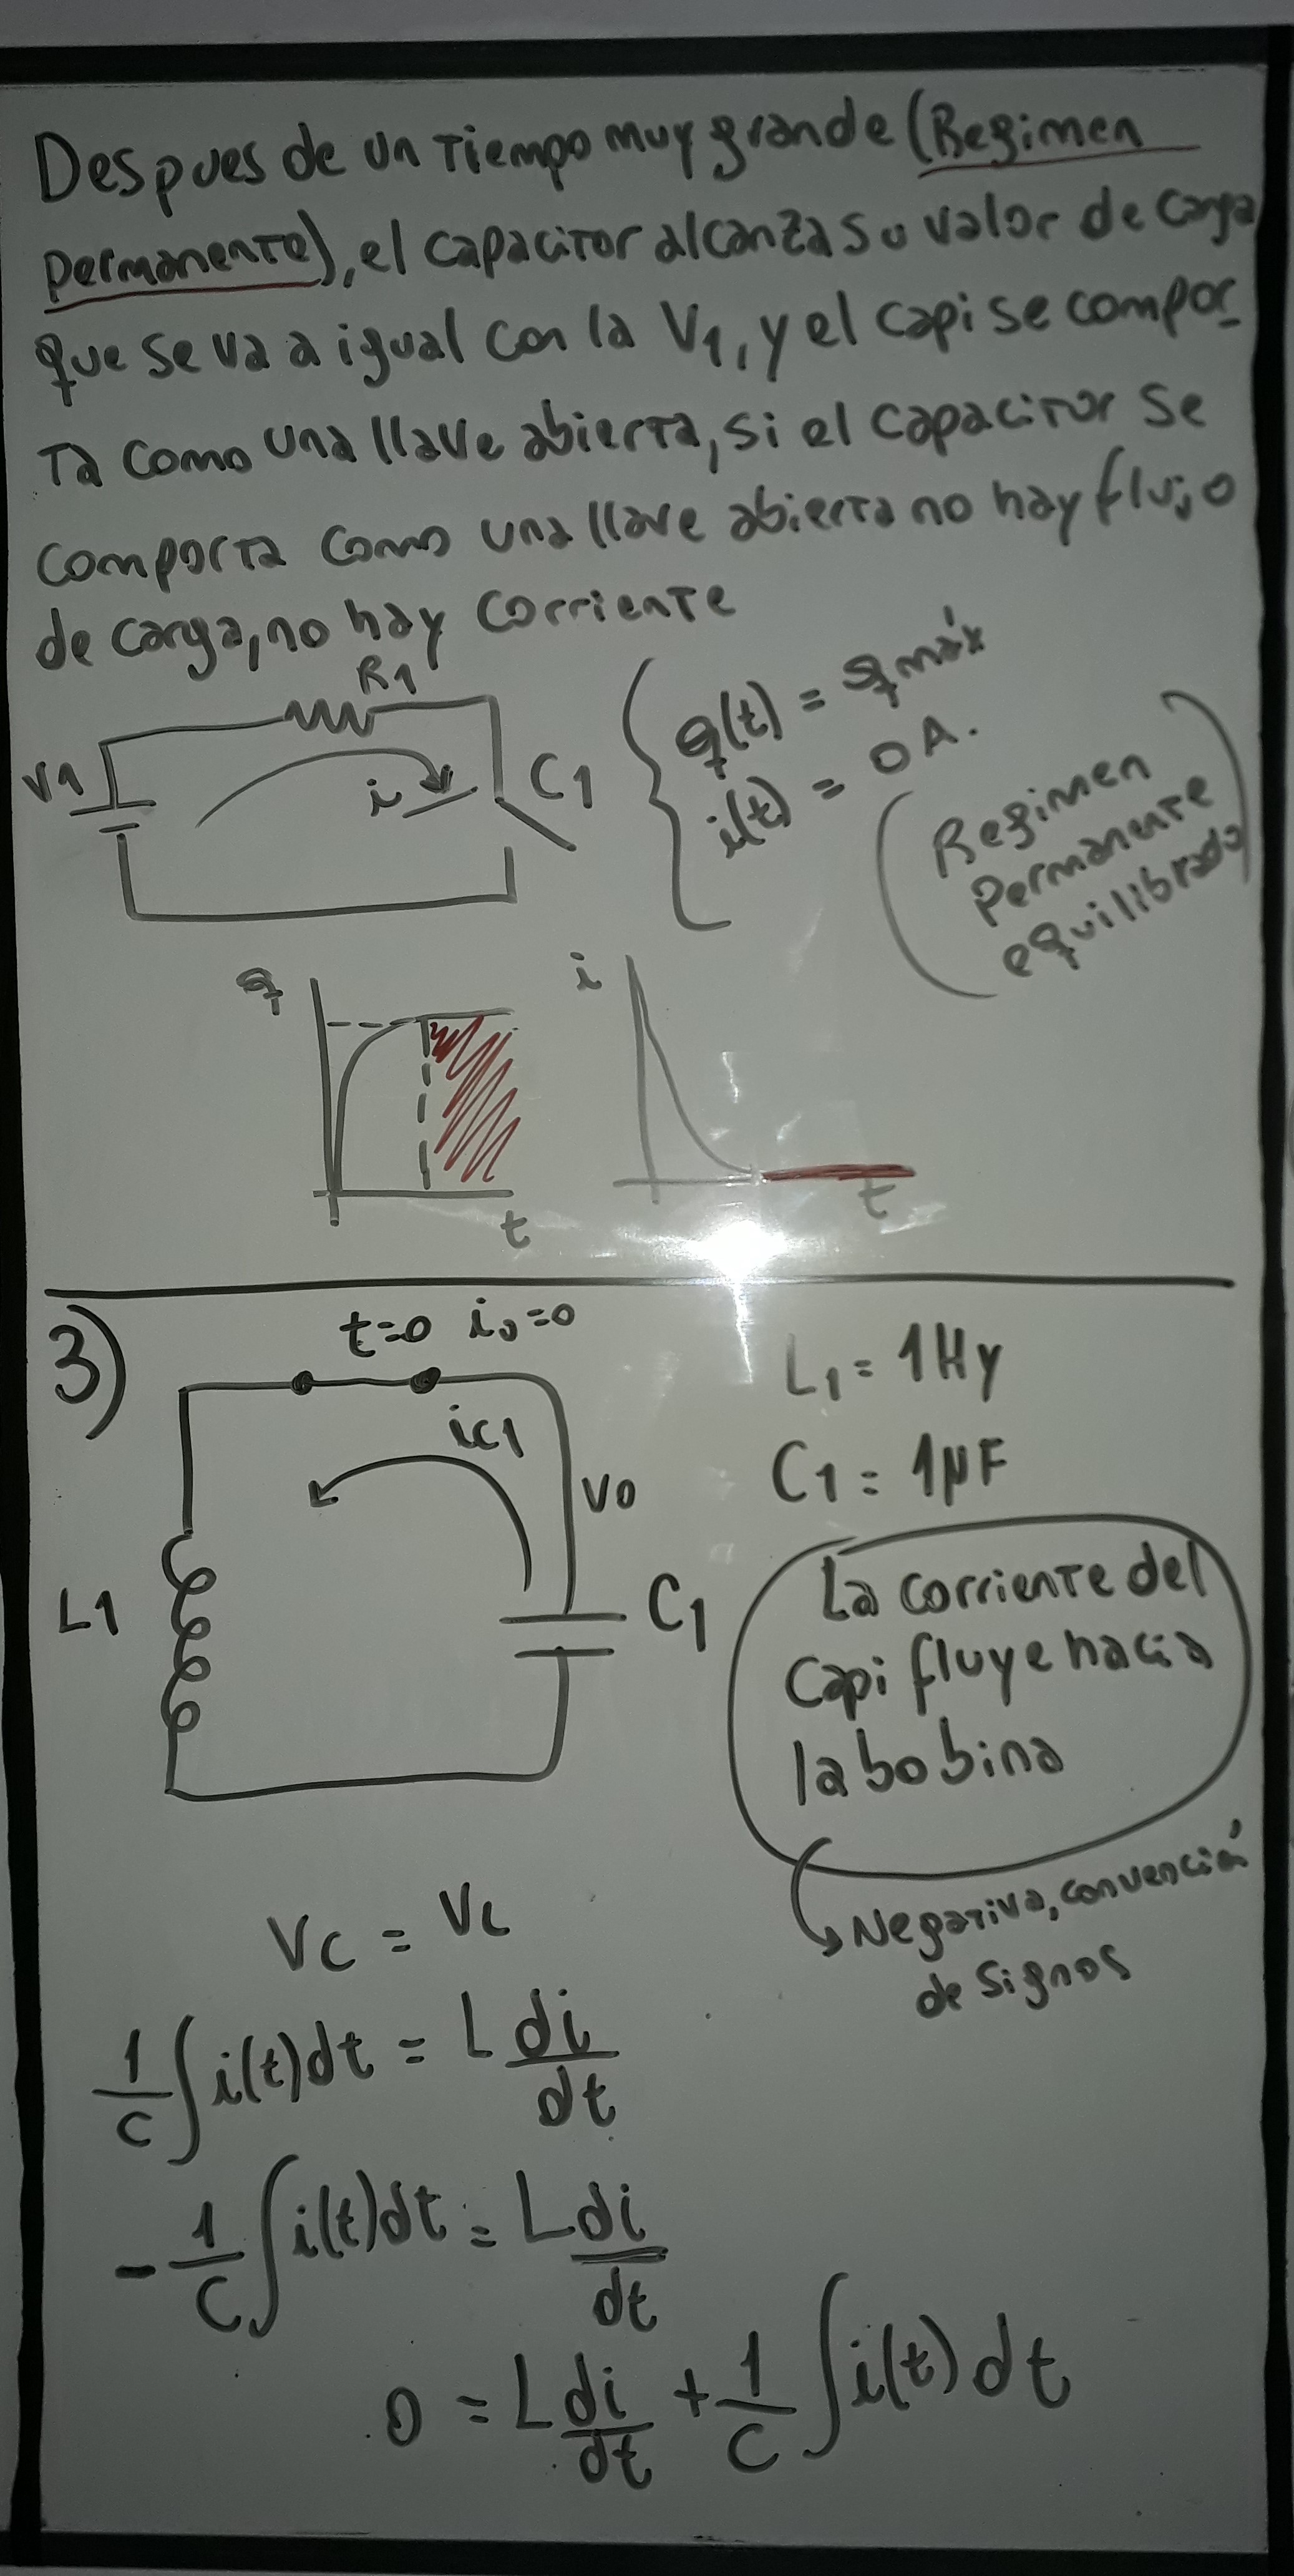 Despues de un Tiempo muy grande (Regimen
permanente), el capacitor alcanza su valor de carga
que se va a igual con la V1, y el capi se compor_
Ta como una llave abierta, si el capacitor se
comporta como una llave abierta no hay flujo
de carga, no hay corriente
R1
V1
i
C1
q(t) = qmáx
i(t) = 0 A.
(Regimen
permanente
equilibrado)
q
t
i
t
3)
t=0 i0=0
ic1
V0
L1
C1
L1 = 1Hy
C1 = 1μF
La corriente del
capi fluye hacia
la bobina
Negativa, convención
de signos
Vc = VL
1/C ∫i(t)dt = L di/dt
- 1/C ∫i(t)dt = L di/dt
0 = L di/dt + 1/C ∫i(t) dt